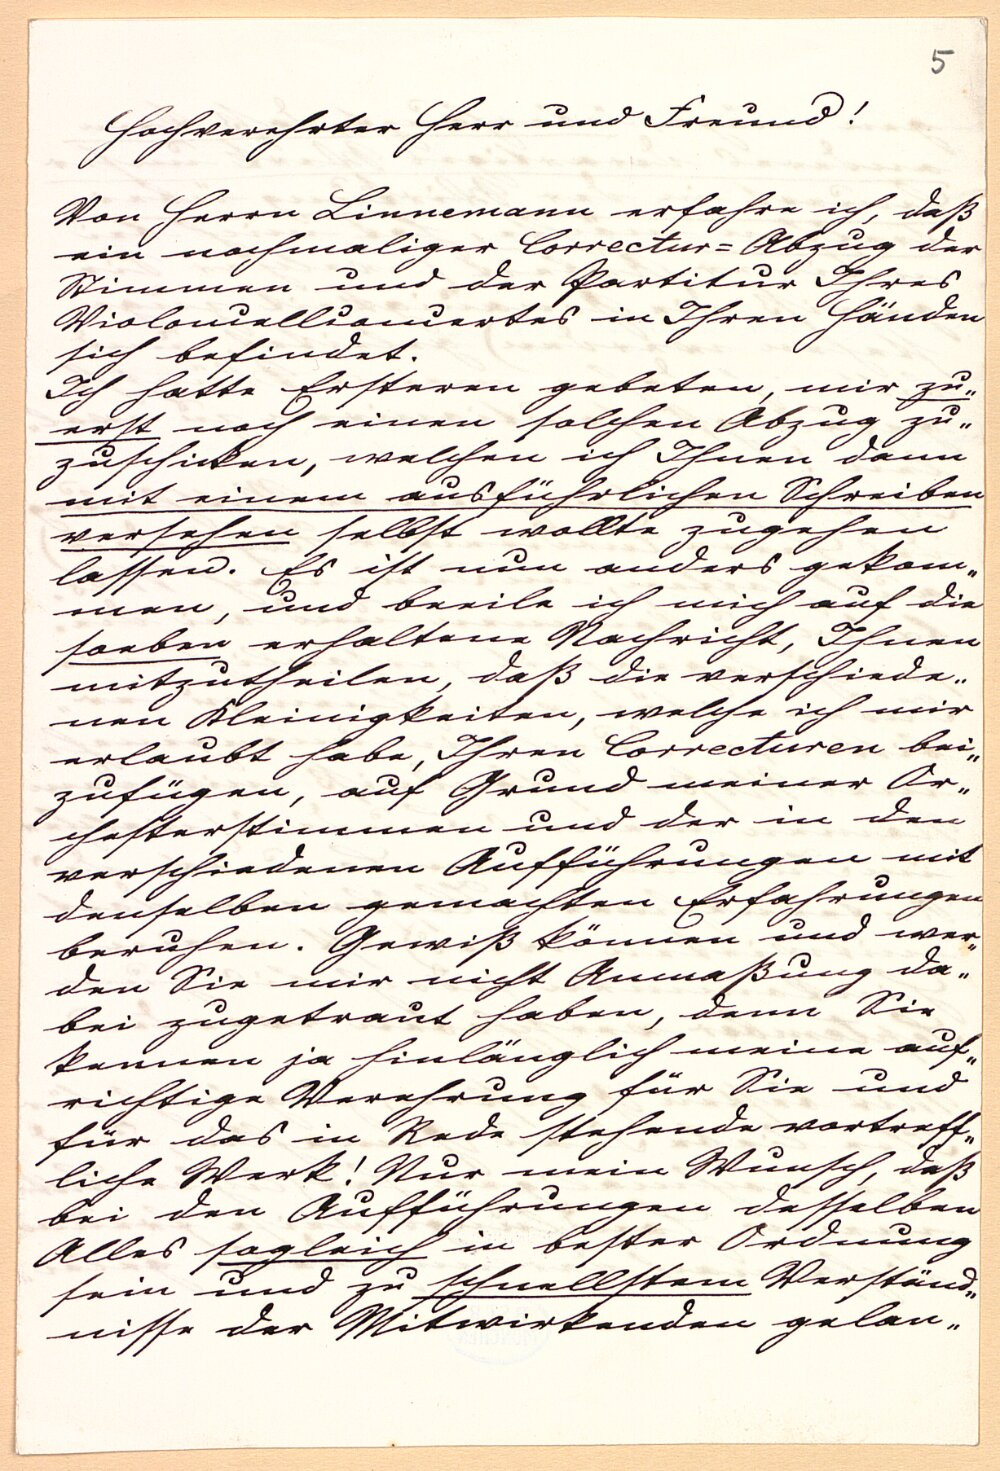 5
Hochverehrter Herr und Freund!
Von Herrn Linnemann erfahre ich, daß
ein nochmaliger Correctur=Abzug der
Stimmen und der Partitur Ihres
Violoncellconcertes in Ihren Händen
sich befindet.
Ich hatte Ersteren gebeten, mir zu„
erst noch einen solchen Abzug zu„
zuschicken, welchen ich Ihnen dann
mit einem ausführlichen Schreiben
versehen selbst wollte zugehen
lassen. Es ist nun anders gekom„
men, und beeile ich mich auf die
soeben erhaltene Nachricht, Ihnen
mitzutheilen, daß die verschiede„
nen Kleinigkeiten, welche ich mir
erlaubt habe, Ihren Correcturen bei„
zufügen, auf Grund meiner Or„
chesterstimmen und der in den
verschiedenen Aufführungen mit
denselben gemachten Erfahrungen
beruhen. Gewiß können und wer„
den Sie mir nicht Anmaßung da„
bei zugetraut haben, denn Sie
kennen ja hinlänglich meine auf„
richtige Verehrung für Sie und
für das in Rede stehende vortreff„
liche Werk! Nur mein Wunsch, daß
bei den Aufführungen desselben
Alles sogleich in bester Ordnung
sein und zu schnellstem Verständ„
nisse der Mitwirkenden gelan„